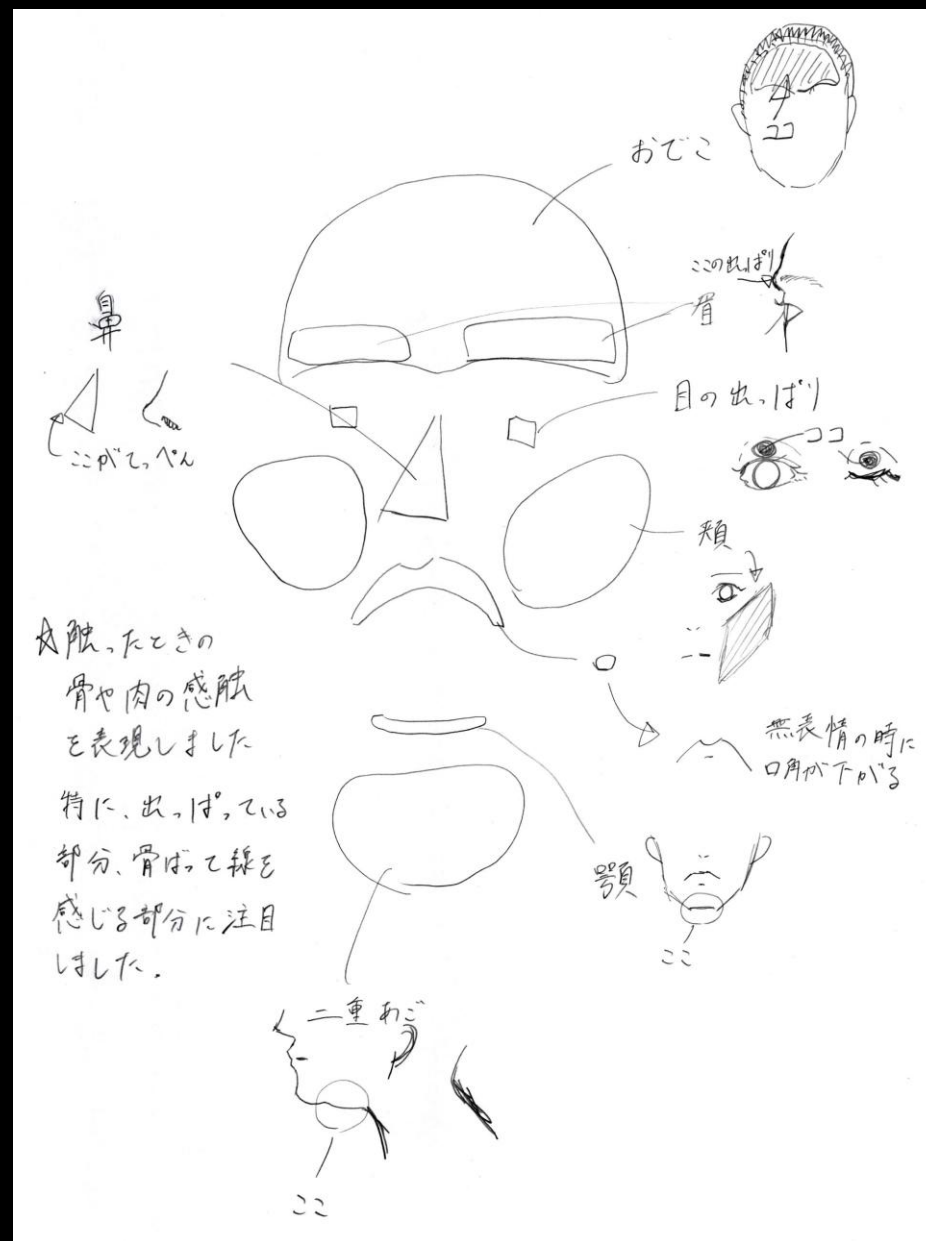 おでこ
ココ
ここの出っぱり
眉
鼻
ここがてっぺん
目の出っぱり
ココ
頬
☆触ったときの
骨や肉の感触
を表現しました
特に、出っぱっている
部分、骨ばって線を
感じる部分に注目
しました。
無表情の時に
口角が下がる
顎
ここ
二重あご
ここ